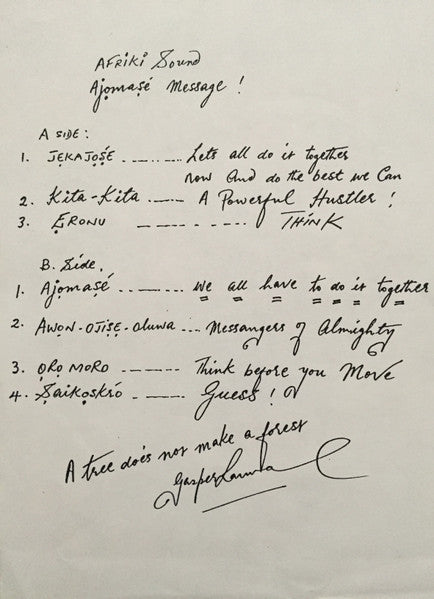 AFRIKI Sound
Ajọmaṣé Message !
A SIDE :
1. JẸKAJOṢE ... Lets all do it together
now And do the best we Can
2. Kita-Kita ... A Powerful Hustler !
3. ERONU ... THINK
B. Side.
1. Ajọmaṣé ... we all have to do it together
2. AWỌN-OJIṢẸ-Oluwa ... Messangers of Almighty
3. ỌRỌ MORO ... Think before you Move
4. Ṣaikoskró ... Guess !
A tree does not make a forest